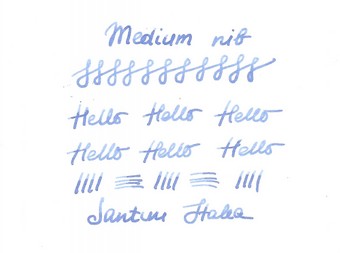 Medium nib
Hello Hello Hello
Hello Hello Hello
Santini Italia